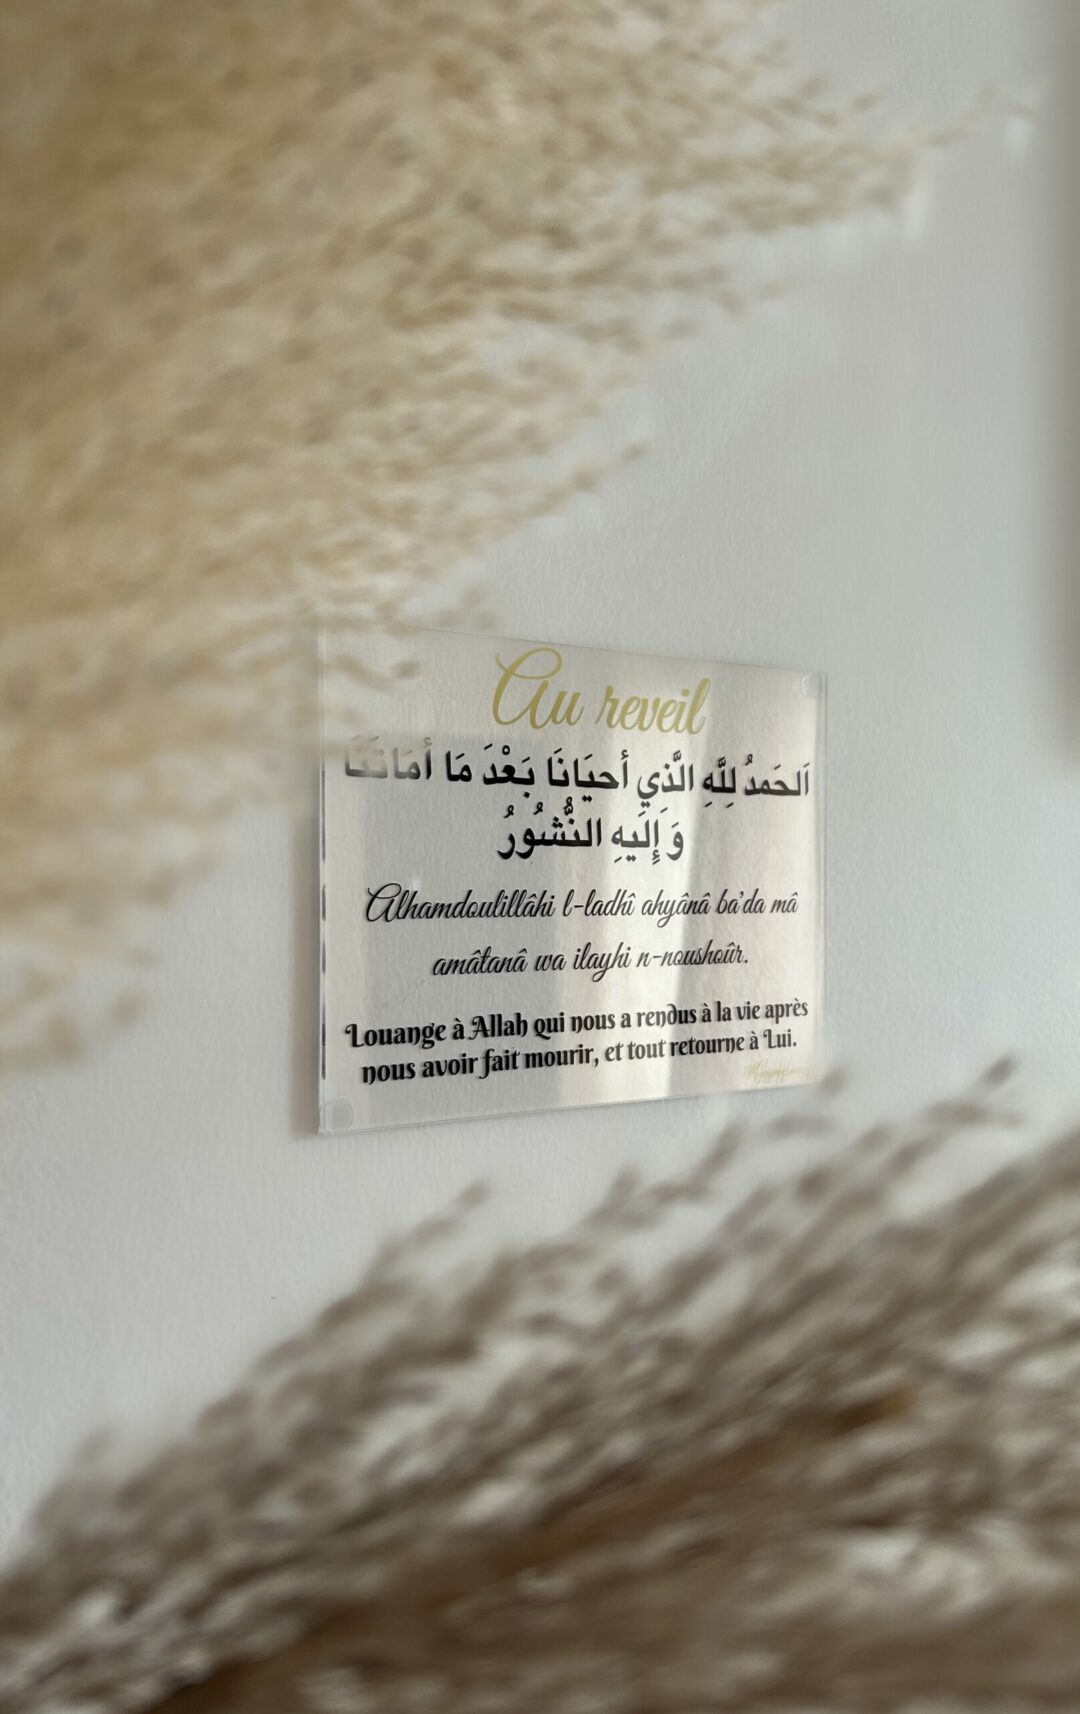 Au reveil
اَلحَمدُ لِلَّهِ الَّذِي أحيَانَا بَعْدَ مَا أمَاتَنَا
وَ إِلَيهِ النُّشُورُ
Alhamdoulillâhi l-ladhî ahyânâ ba'da mâ
amâtanâ wa ilayhi n-noushoûr.
Louange à Allah qui nous a rendus à la vie après
nous avoir fait mourir, et tout retourne à Lui.